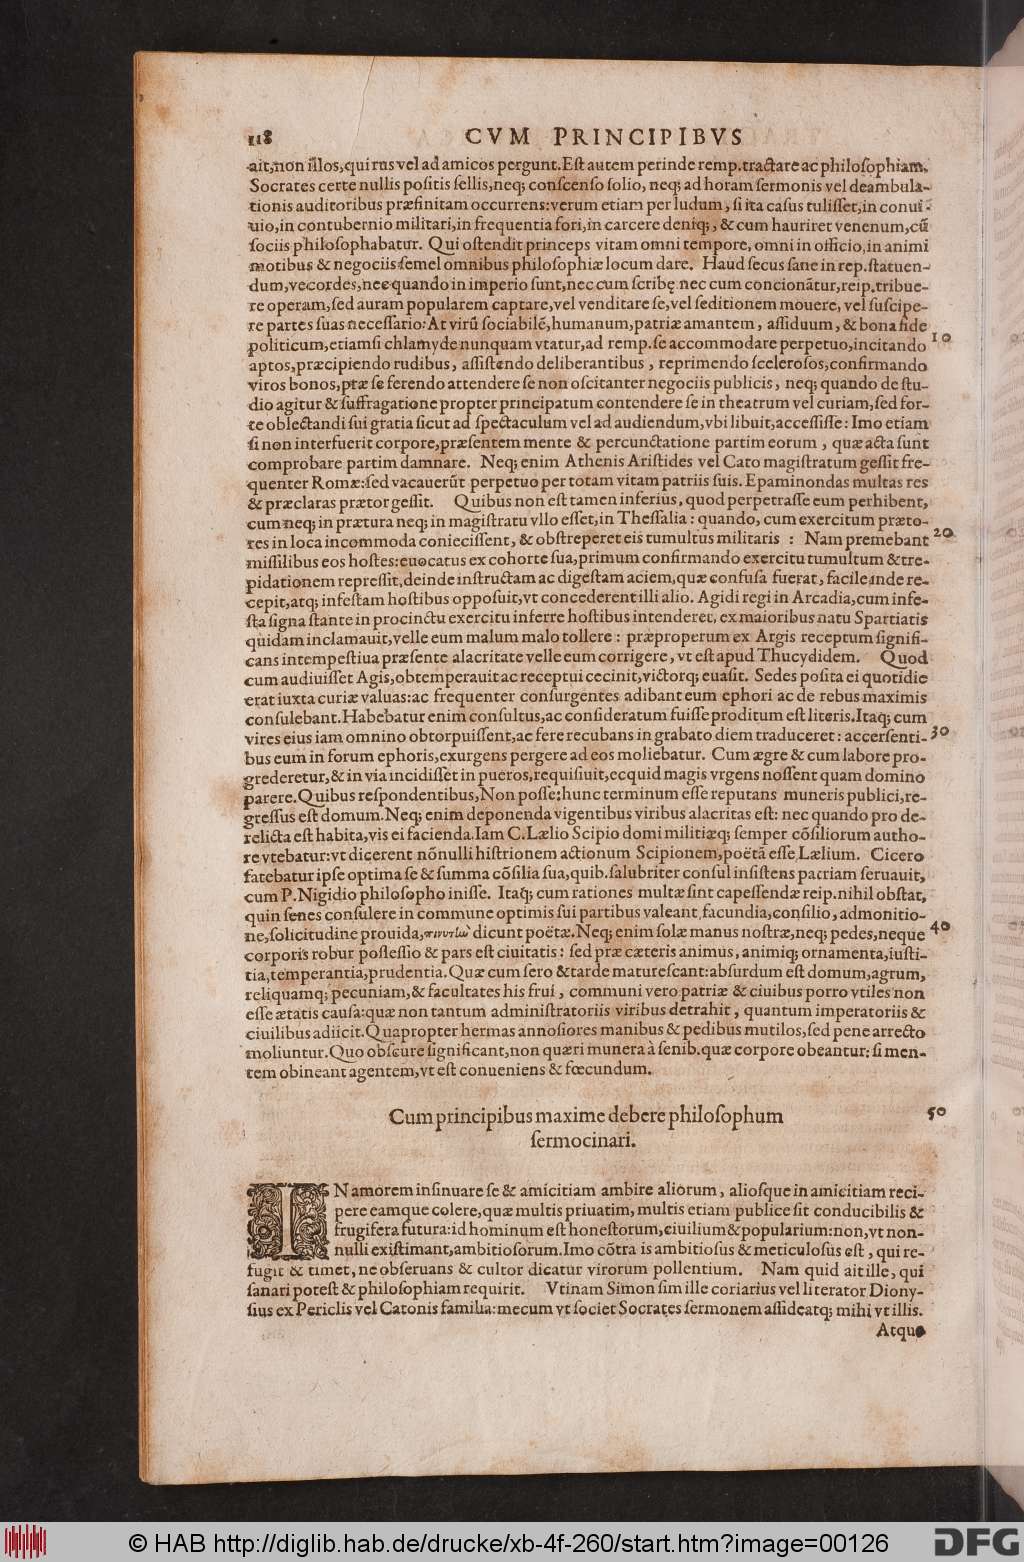 118 CVM PRINCIPIBVS
ait, non illos, qui rus vel ad amicos pergunt. Est autem perinde remp. tractare ac philosophiam.
Socrates certe nullis positis sellis, neq; conscenso solio, neq; ad horam sermonis vel deambula-
tionis auditoribus præfinitam occurrens: verum etiam per ludum, si ita casus tulisset, in conui-
uio, in contubernio militari, in frequentia fori, in carcere deniq;, & cum hauriret venenum, cũ
sociis philosophabatur. Qui ostendit princeps vitam omni tempore, omni in officio, in animi
motibus & negociis semel omnibus philosophiæ locum dare. Haud secus sane in rep. statuen-
dum, vecordes, nec quando in imperio sunt, nec cum scribę nec cum concionãtur, reip. tribue-
re operam, sed auram popularem captare, vel venditare se, vel seditionem mouere, vel suscipe-
re partes suas necessario: At virũ sociabilẽ, humanum, patriæ amantem, assiduum, & bona fide
politicum, etiamsi chlamyde nunquam vtatur, ad remp. se accommodare perpetuo, incitando 10
aptos, præcipiendo rudibus, assistendo deliberantibus, reprimendo scelerosos, confirmando
viros bonos, præ se ferendo attendere se non oscitanter negociis publicis, neq; quando de stu-
dio agitur & suffragatione propter principatum contendere se in theatrum vel curiam, sed for-
te oblectandi sui gratia sicut ad spectaculum vel ad audiendum, vbi libuit, accessisse: Imo etiam
si non interfuerit corpore, præsentem mente & percunctatione partim eorum, quæ acta sunt
comprobare partim damnare. Neq; enim Athenis Aristides vel Cato magistratum gessit fre-
quenter Romæ: sed vacauerũt perpetuo per totam vitam patriis suis. Epaminondas multas res
& præclaras prætor gessit. Quibus non est tamen inferius, quod perpetrasse eum perhibent,
cum neq; in prætura neq; in magistratu vllo esset, in Thessalia: quando, cum exercitum præto-
res in loca incommoda coniecissent, & obstreperet eis tumultus militaris: Nam premebant 20
missilibus eos hostes: euocatus ex cohorte sua, primum confirmando exercitu tumultum & tre-
pidationem repressit, deinde instructam ac digestam aciem, quæ confusa fuerat, facile inde re-
cepit, atq; infestam hostibus opposuit, vt concederent illi alio. Agidi regi in Arcadia, cum infe-
sta signa stante in procinctu exercitu inferre hostibus intenderet, ex maioribus natu Spartiatis
quidam inclamauit, velle eum malum malo tollere: præproperum ex Argis receptum signifi-
cans intempestiua præsente alacritate velle eum corrigere, vt est apud Thucydidem. Quod
cum audiuisset Agis, obtemperauit ac receptui cecinit, victorq; euasit. Sedes posita ei quotidie
erat iuxta curiæ valuas: ac frequenter consurgentes adibant eum ephori ac de rebus maximis
consulebant. Habebatur enim consultus, ac consideratum fuisse proditum est literis. Itaq; cum
vires eius iam omnino obtorpuissent, ac fere recubans in grabato diem traduceret: accersenti- 30
bus eum in forum ephoris, exurgens pergere ad eos moliebatur. Cum ægre & cum labore pro-
grederetur, & in via incidisset in pueros, requisiuit, ecquid magis vrgens nossent quam domino
parere. Quibus respondentibus, Non posse: hunc terminum esse reputans muneris publici, re-
gressus est domum. Neq; enim deponenda vigentibus viribus alacritas est: nec quando pro de-
relicta est habita, vis ei facienda. Iam C. Lælio Scipio domi militiæq; semper cõsiliorum autho-
re vtebatur: vt dicerent nõnulli histrionem actionum Scipionem, poëtã esse Lælium. Cicero
fatebatur ipse optima se & summa cõsilia sua, quib. salubriter consul insistens patriam seruauit,
cum P. Nigidio philosopho inisse. Itaq; cum rationes multæ sint capessendæ reip. nihil obstat,
quin senes consulere in commune optimis sui partibus valeant, facundia, consilio, admonitio-
ne, solicitudine prouida, dicunt poëtæ. Neq; enim solæ manus nostræ, neq; pedes, neque 40
corporis robur possessio & pars est ciuitatis: sed præ cæteris animus, animiq; ornamenta, iusti-
tia, temperantia, prudentia. Quæ cum sero & tarde maturescant: absurdum est domum, agrum,
reliquamq; pecuniam, & facultates his frui, communi vero patriæ & ciuibus porro vtiles non
esse ætatis causa: quæ non tantum administratoriis viribus detrahit, quantum imperatoriis &
ciuilibus adiicit. Quapropter hermas annosiores manibus & pedibus mutilos, sed pene arrecto
moliuntur. Quo obscure significant, non quæri munera à senib. quæ corpore obeantur: si men-
tem obineant agentem, vt est conueniens & fœcundum.
Cum principibus maxime debere philosophum 50
sermocinari.
IN amorem insinuare se & amicitiam ambire aliorum, aliosque in amicitiam reci-
pere eamque colere, quæ multis priuatim, multis etiam publice sit conducibilis &
frugifera futura: id hominum est honestorum, ciuilium & popularium: non, vt non-
nulli existimant, ambitiosorum. Imo cõtra is ambitiosus & meticulosus est, qui re-
fugit & timet, ne obseruans & cultor dicatur virorum pollentium. Nam quid ait ille, qui
sanari potest & philosophiam requirit. Vtinam Simon sim ille coriarius vel literator Diony-
sius ex Periclis vel Catonis familia: mecum vt societ Socrates sermonem assideatq; mihi vt illis.
Atque
© HAB http://diglib.hab.de/drucke/xb-4f-260/start.htm?image=00126 DFG